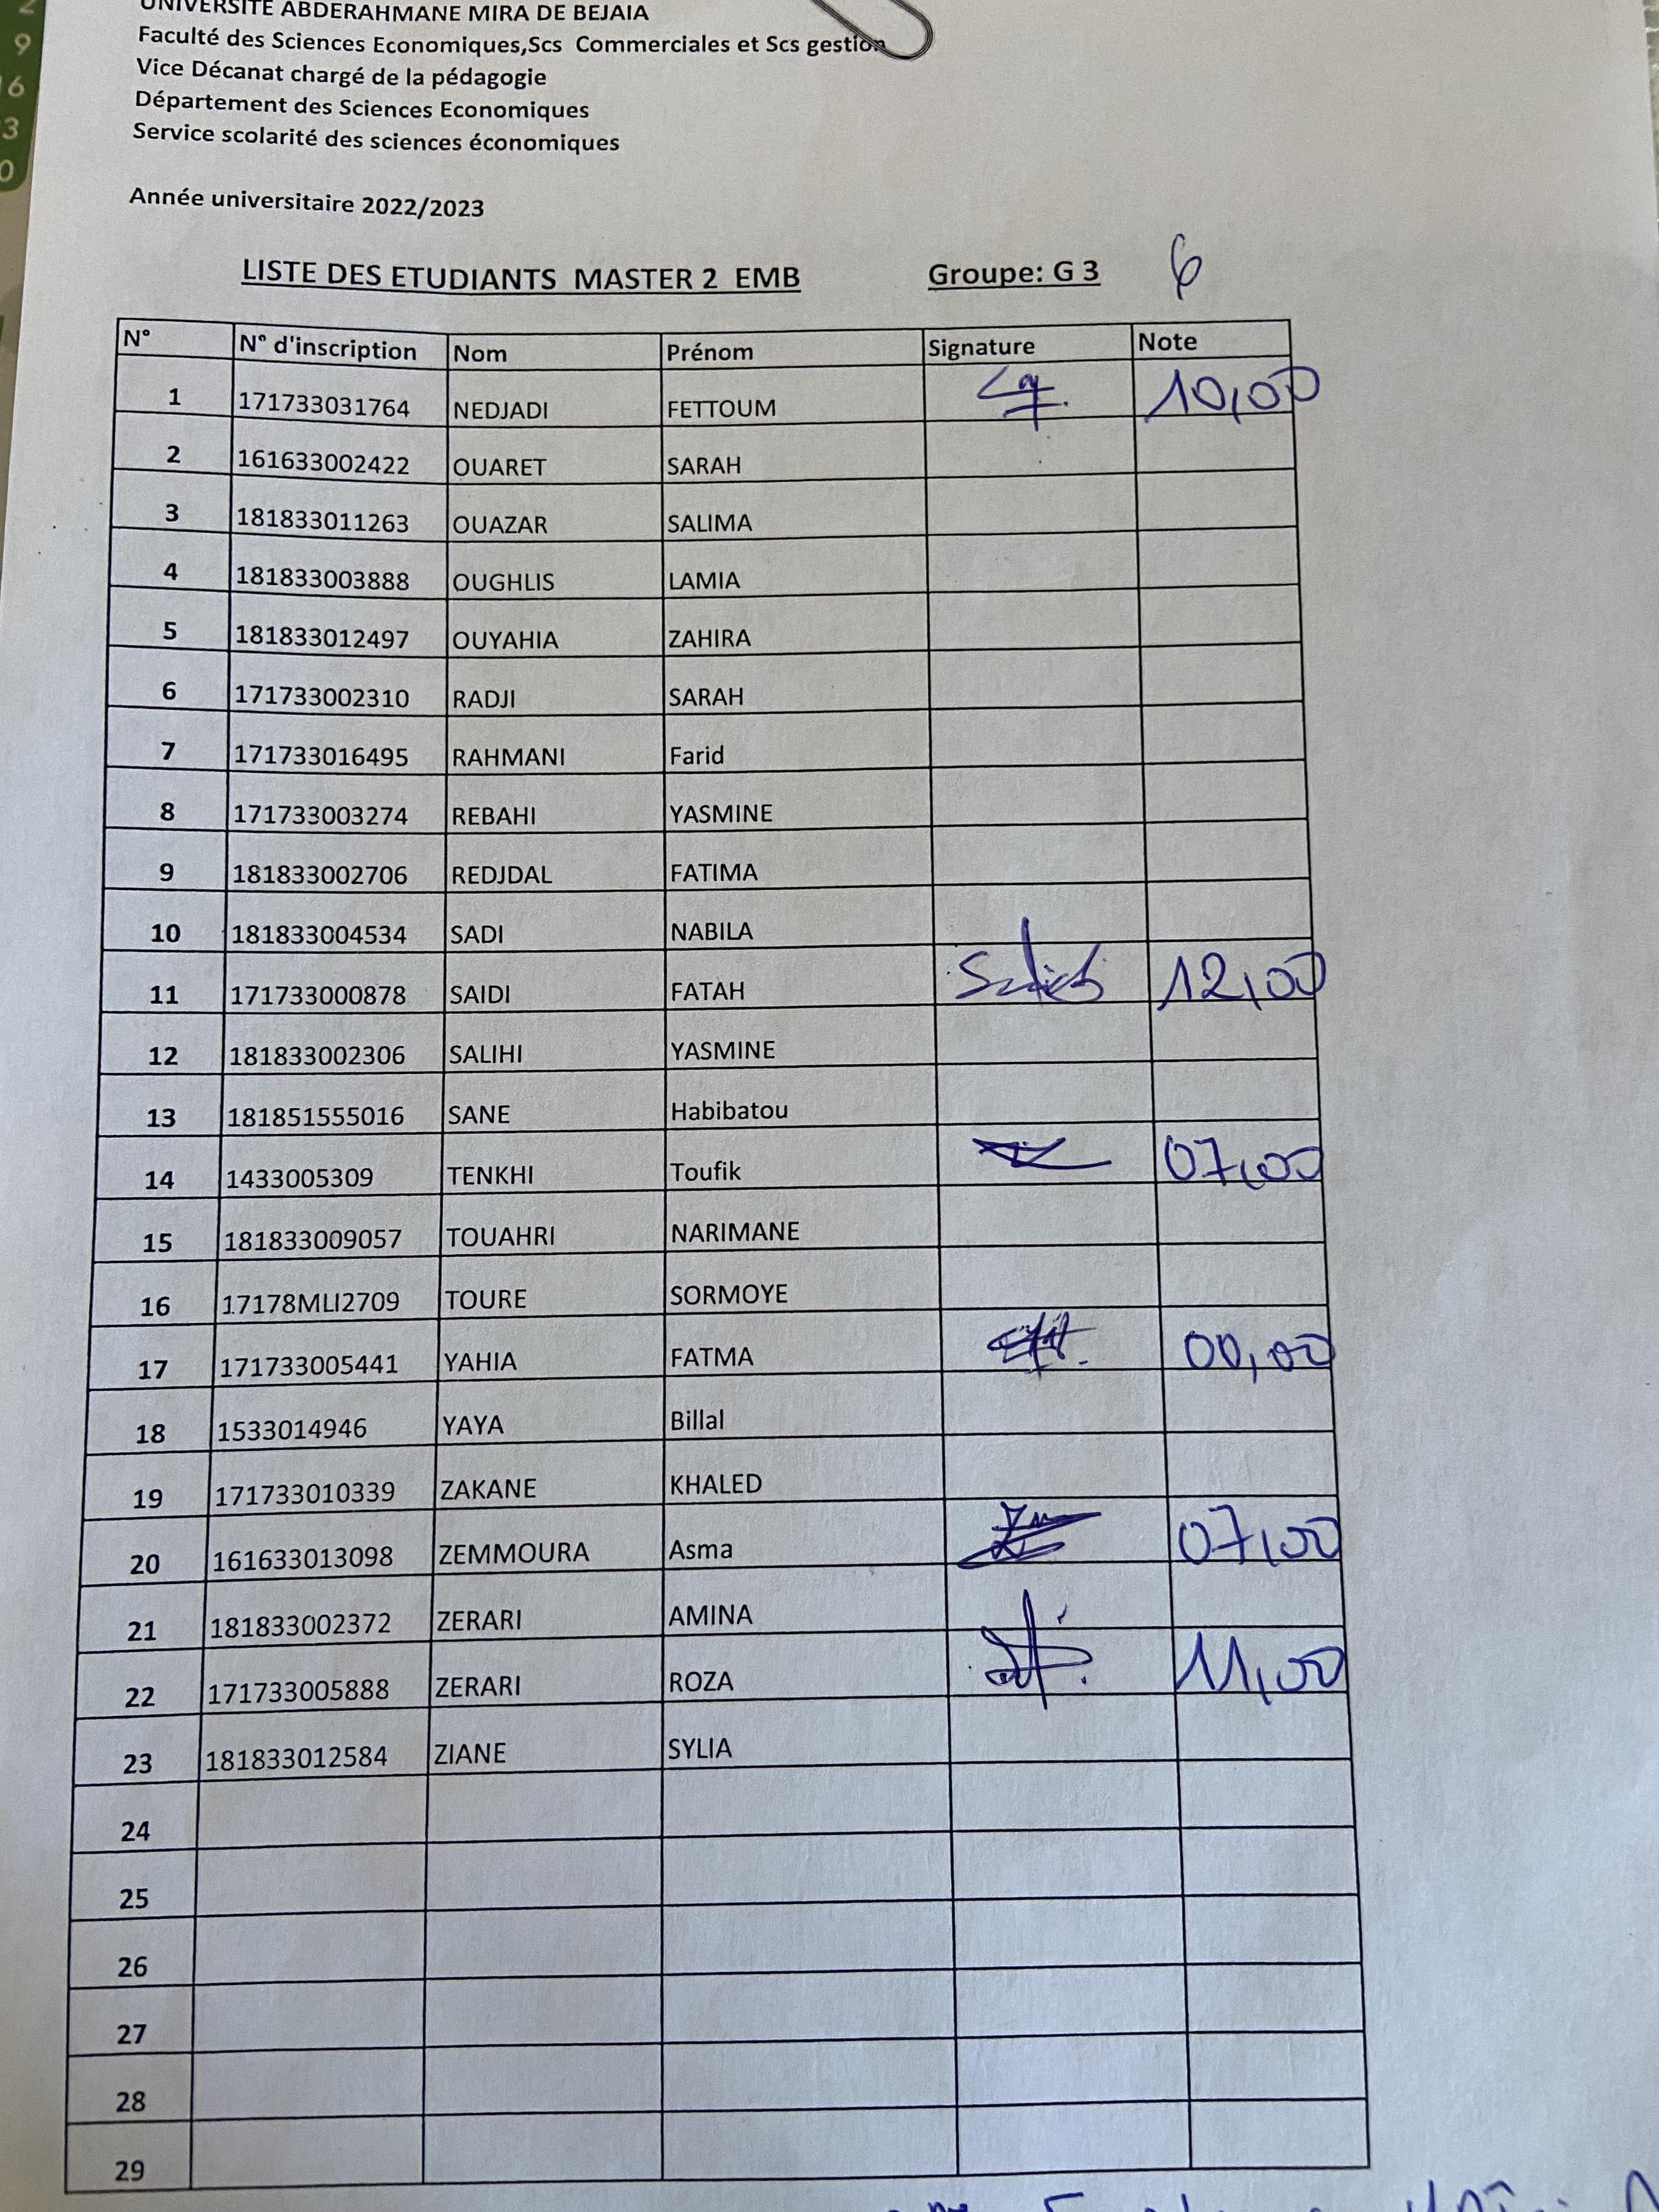 UNIVERSITE ABDERAHMANE MIRA DE BEJAIA
Faculté des Sciences Economiques,Scs Commerciales et Scs gestion
Vice Décanat chargé de la pédagogie
Département des Sciences Economiques
Service scolarité des sciences économiques
Année universitaire 2022/2023
LISTE DES ETUDIANTS MASTER 2 EMB Groupe: G 3 6
N° N° d'inscription Nom Prénom Signature Note
1 171733031764 NEDJADI FETTOUM 10,00
2 161633002422 OUARET SARAH
3 181833011263 OUAZAR SALIMA
4 181833003888 OUGHLIS LAMIA
5 181833012497 OUYAHIA ZAHIRA
6 171733002310 RADJI SARAH
7 171733016495 RAHMANI Farid
8 171733003274 REBAHI YASMINE
9 181833002706 REDJDAL FATIMA
10 181833004534 SADI NABILA
11 171733000878 SAIDI FATAH 12,00
12 181833002306 SALIHI YASMINE
13 181851555016 SANE Habibatou
14 1433005309 TENKHI Toufik 07,00
15 181833009057 TOUAHRI NARIMANE
16 17178MLI2709 TOURE SORMOYE
17 171733005441 YAHIA FATMA 00,00
18 1533014946 YAYA Billal
19 171733010339 ZAKANE KHALED
20 161633013098 ZEMMOURA Asma 07,00
21 181833002372 ZERARI AMINA
22 171733005888 ZERARI ROZA 11,00
23 181833012584 ZIANE SYLIA
24
25
26
27
28
29